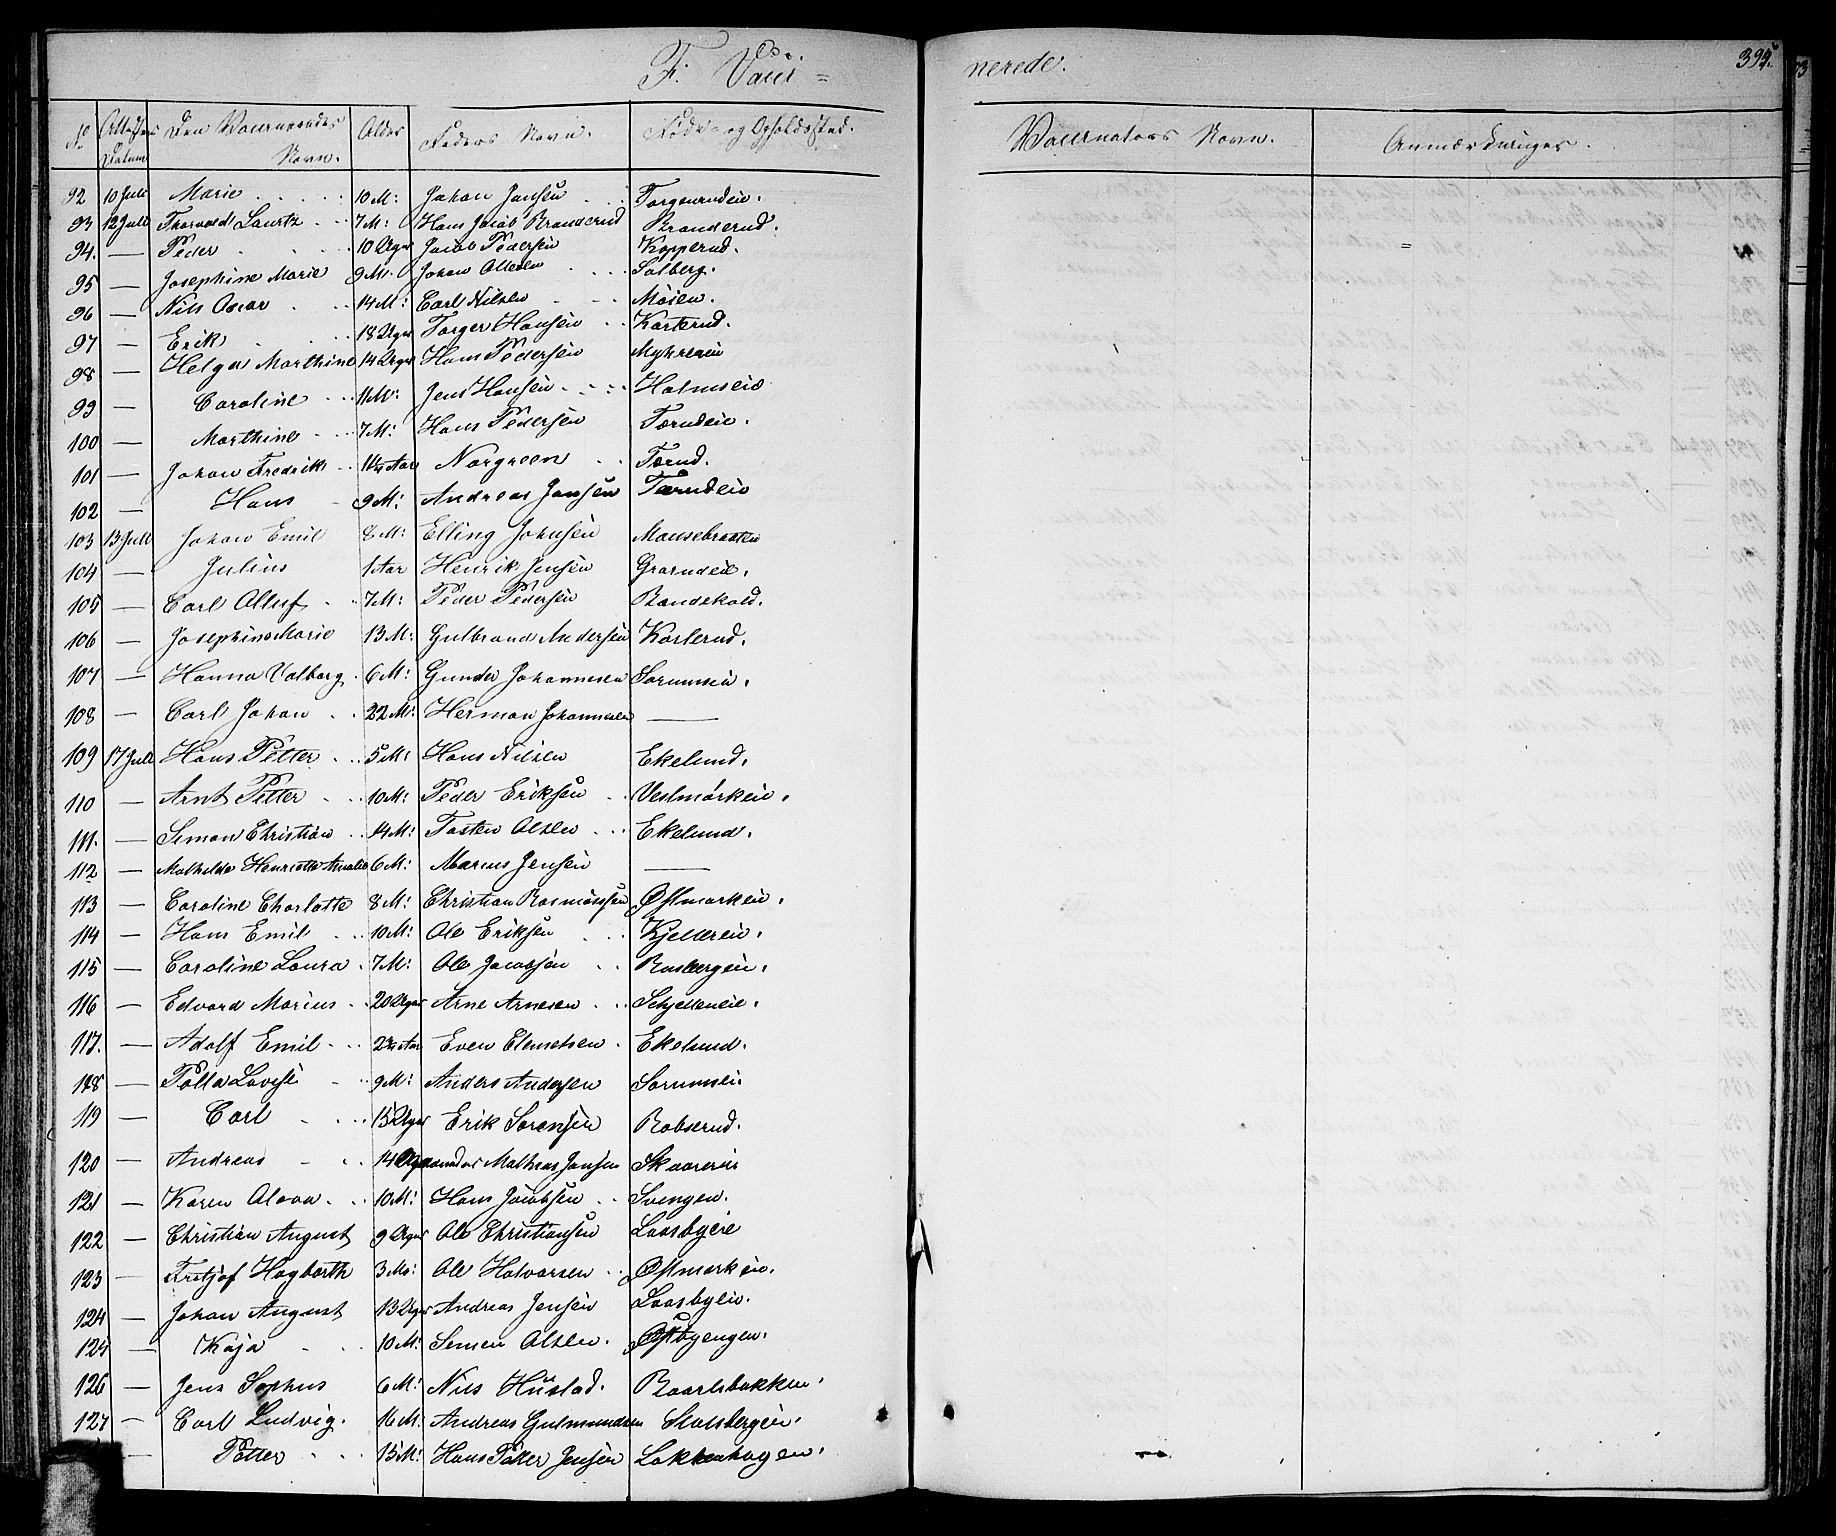 F. Vacci=
nerede.
394.
No Attestens Datum Den Vaccineredes Navn. Alder Faders Navn. Føde- og Opholdssted. Vaccinators Navn. Anmærkninger.
92 10 Juli Marie 10 M: Johan Jansen Torgerudeie.
93 12 Juli Thorvald Lauritz 7 M: Hans Jacob Branderud Branderud.
94. — Peder 10 Uger Jacob Pedersen Kopperud.
95 — Josephine Marie 9 M. Johan Ottesen Solberg.
96 — Nils Oscar 14 M: Carl Nilsen Moien.
97 — Erik 18 Uger Torger Hansen Karterud.
98 — Helga Marthine 14 Uger Hans Pedersen Myhreeie
99 — Caroline 11 M: Jens Hansen Holmseie
100 — Marthine 7 M: Hans Pedersen Tærudeie.
101 — Johan Fredrik 1½ Aar Norgreen Tærud.
102 — Hans 9 M: Andreas Jansen Tærudeie
103 13 Juli Johan Emil 8 M: Elling Johnsen Mausebraaten
104 — Julius 1 Aar Henrik Jensen Grarudeie.
105 — Carl Olluf 7 M: Peder Pedersen Bandekold.
106 — Josephine Marie 13 M: Gulbrand Andersen Karlerud.
107 — Hanna Valborg 6 M: Gunder Johannesen Sorumeie.
108 — Carl Johan 22 M: Herman Johannesen —
109 17 Juli Hans Petter 5 M: Hans Nilsen Ekelund.
110 — Arnt Petter 10 M: Peder Eriksen Vestmorkeie.
111. — Simon Christian 14 M: Tosten Olsen Ekelund.
112 — Mathilde Henriette Amalie 6 M: Marius Jensen —
113 — Caroline Charlotte 8 M: Christian Rasmussen Østmarkeie.
114 — Hans Emil 10 M: Ole Eriksen Kjellereie.
115 — Caroline Laura 7 M: Ole Jacobsen Rasbergeie.
116 — Edvard Marius 20 Uger Arne Arnesen Schjetteneie.
117. — Adolf Emil 2½ Aar Even Clemetsen Ekelund.
118 — Petra Lovise 9 M: Anders Andersen Sorumeie.
119 — Carl 15 Uger Erik Sorensen Robserud.
120 — Andreas 14 Uger Mathias Jansen Skaarerie
121 — Karen Olava 10 M: Hans Jacobsen Svingen.
122 — Christian August 9 Uger Ole Christiansen Laasbyeie
123 — Fritjof Hagbarth 3 Mo: Ole Halvorsen Østmarkeie.
124 — Johan August 13 Uger Andreas Jensen Laasbyeie.
124 — Kaja 10 M: Simen Olsen. Østbyengen.
126 — Jens Sophus 6 M: Nils Hustad. Baarlsbakken.
127 — Carl Ludvig. 16 M: Andreas Gulmundsen Skalsbergeie.
— Petter 15 M: Hans Peter Jensen Lokkenhagen.